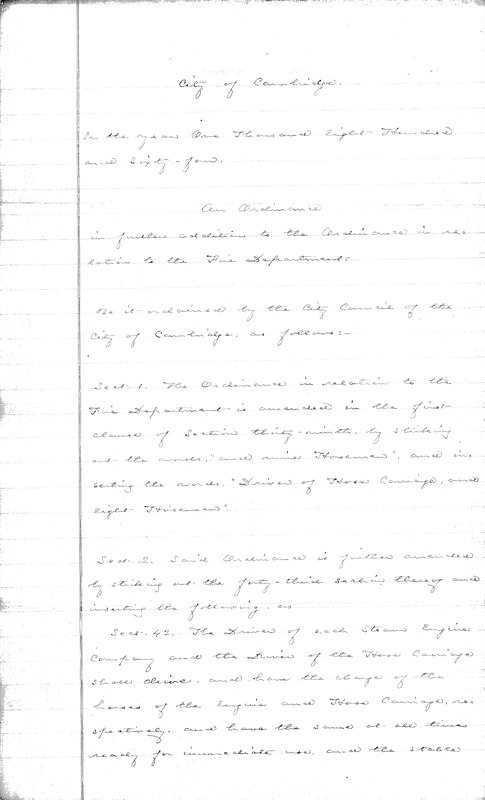 City of Cambridge.
In the year One Thousand Eight Hundred
and Sixty-four.
An Ordinance
in further addition to the Ordinance in re-
lation to the Fire Department.
Be it ordained by the City Council of the
City of Cambridge, as follows:-
Sect. 1. The Ordinance in relation to the
Fire Department is amended in the first
clause of Section thirty-ninth, by striking
out the words, "and nine Hosemen", and in-
serting the words, "Driver of Hose Carriage, and
eight Hosemen".
Sect. 2. Said Ordinance is further amended
by striking out the forty-third section thereof and
inserting the following, as
Sect. 43. The Driver of each Steam Engine
Company and the Driver of the Hose Carriage
shall drive, and have the charge of the
horses of the Engine and Hose Carriage, re-
spectively, and have the same at all times
ready for immediate use, and the stable